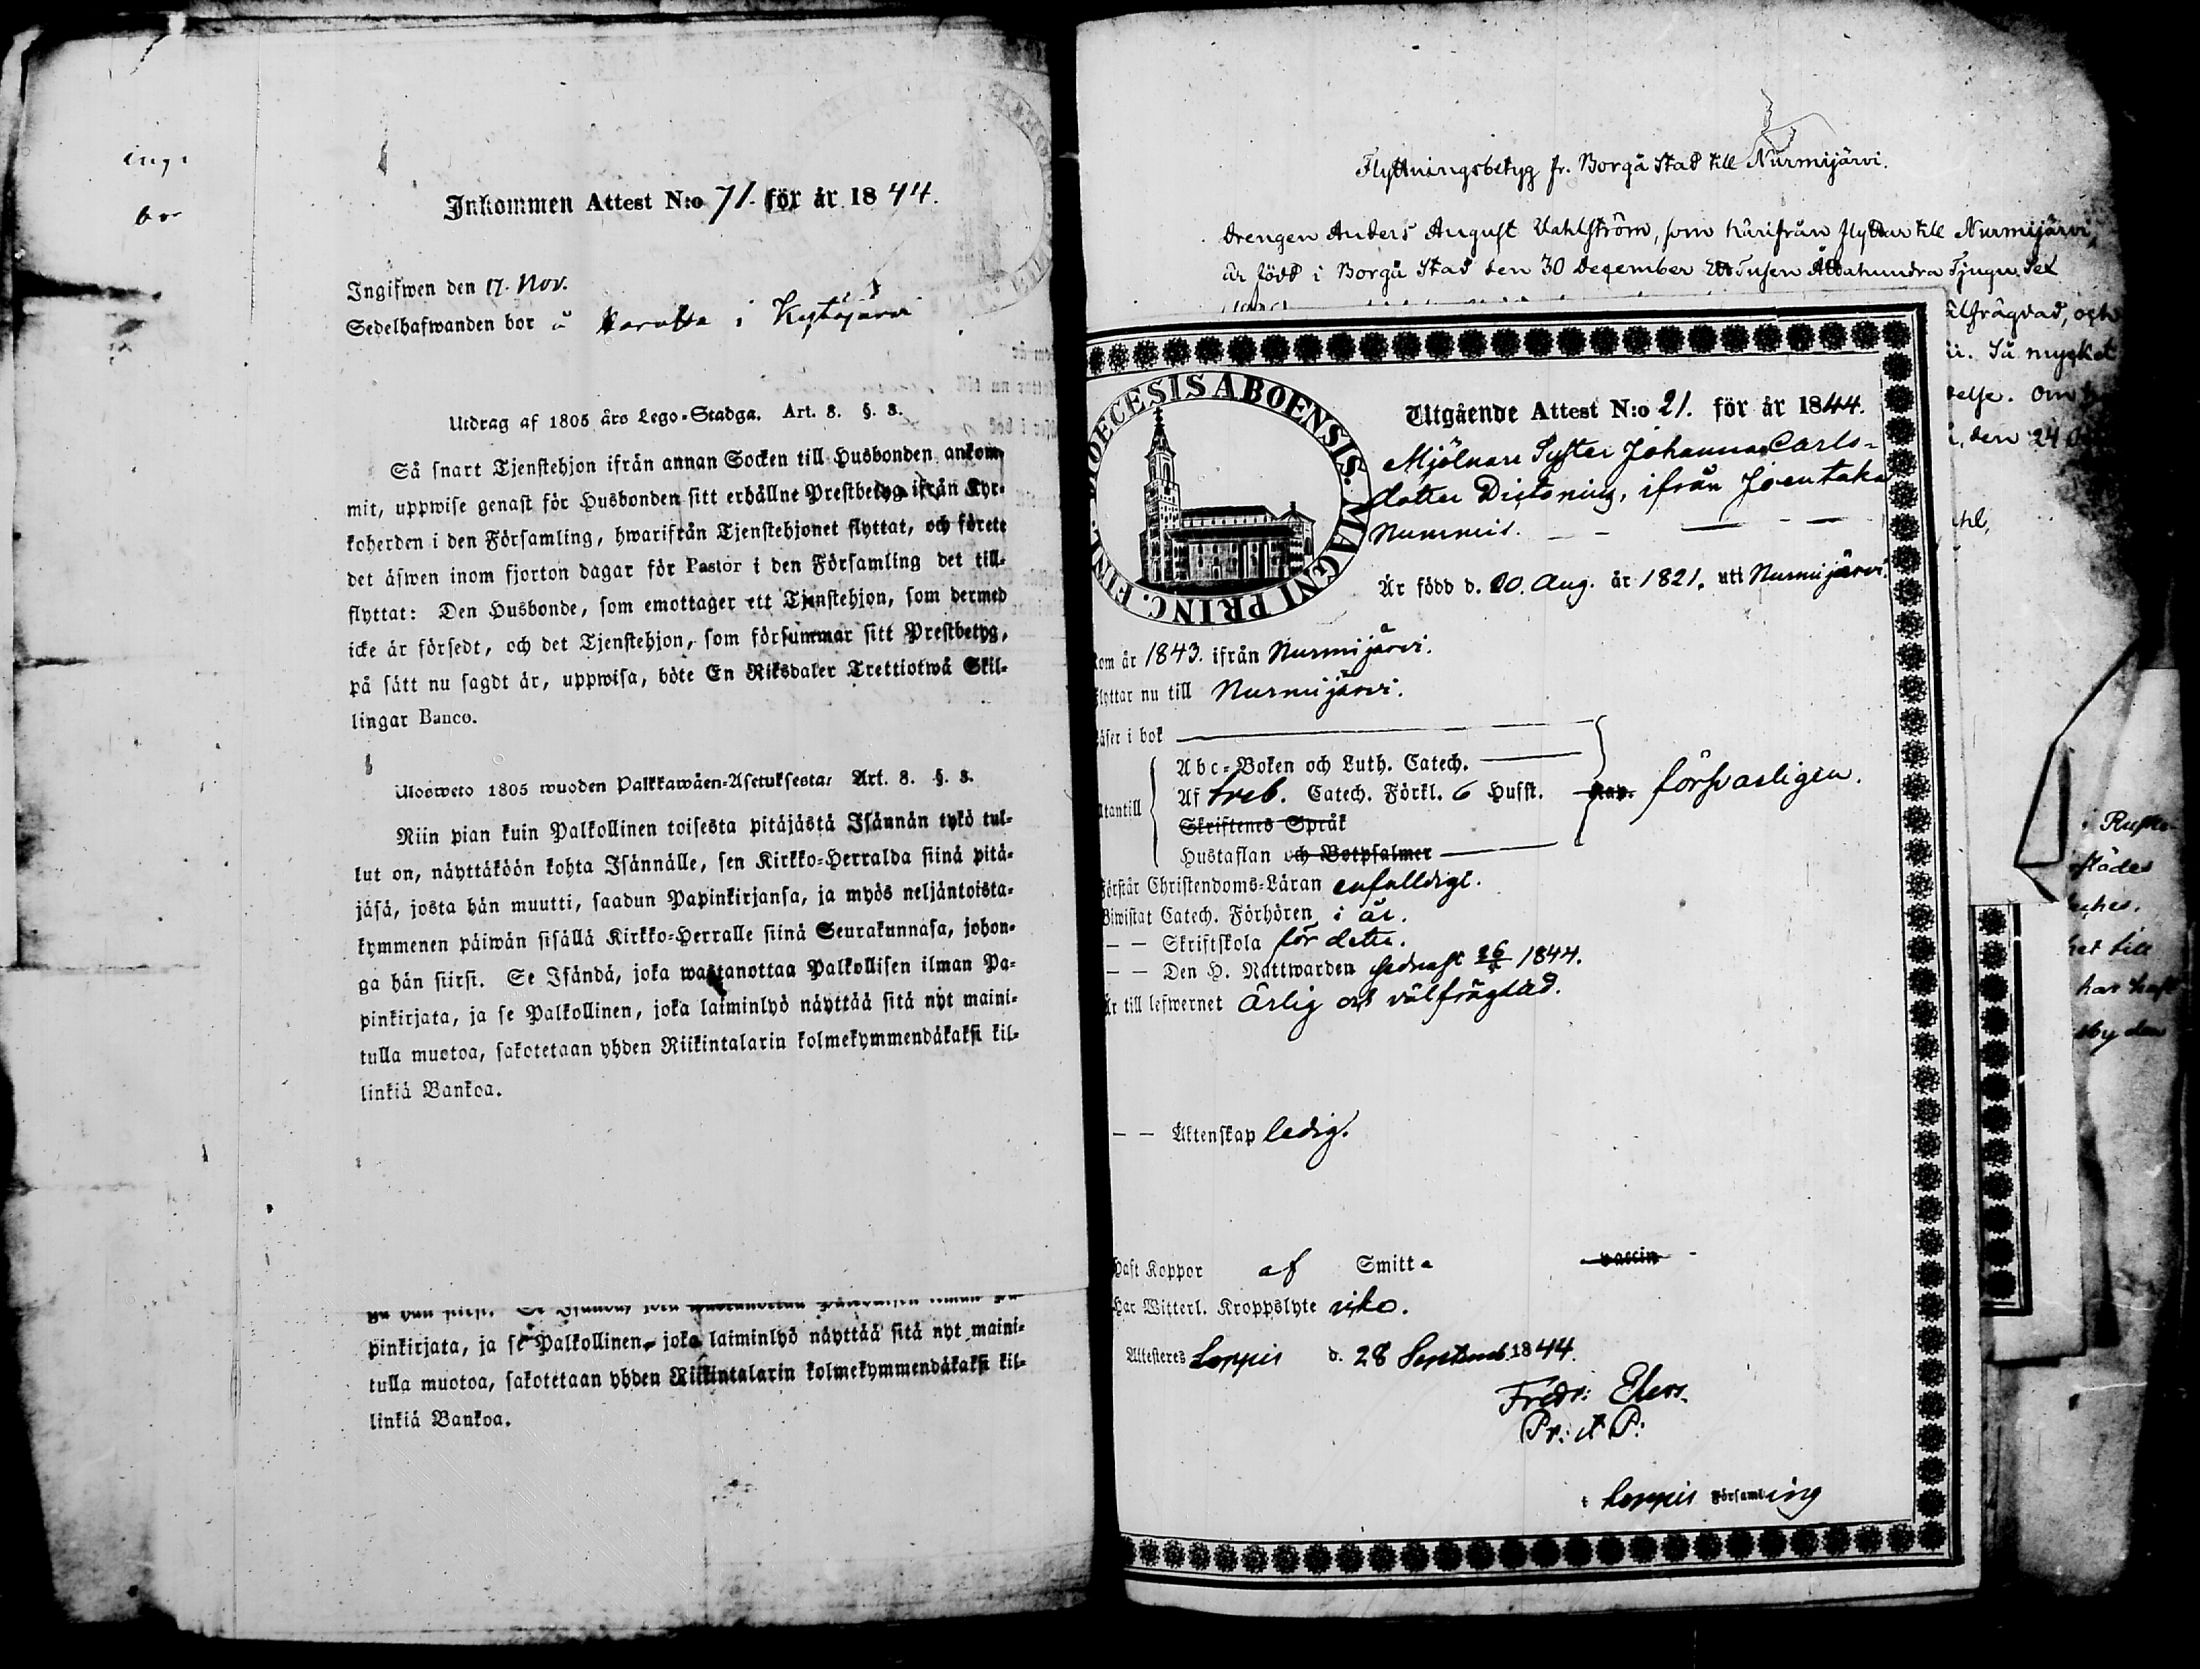 Inkommen Attest N:o 71. för år 1844.
Ingifwen den 17. Nov.
Sedelhafwanden bor å i Kytäjärvi
Utdrag af 1805 års Lego-Stadga. Art. 8. §. 8.
Så snart Tjenstehjon ifrån annan Socken till Husbonden ankom-
mit, uppwise genast för Husbonden sitt erhållne Prestbetyg ifrån Kyr-
koherden i den Församling, hwarifrån Tjenstehjonet flyttat, och förete
det äfwen inom fjorton dagar för Pastor i den Församling det till-
flyttat: Den Husbonde, som emottager ett Tjenstehjon, som dermed
icke är försedt, och det Tjenstehjon, som försummar sitt Prestbetyg,
på sätt nu sagdt är, uppwisa, böte En Riksdaler Trettiotwå Skil-
lingar Banco.
Ulosweto 1805 wuoden Palkkawäen-Asetuksesta: Art. 8. §. 8.
Niin pian kuin Palkollinen toisesta pitäjästä Isännän tykö tul-
lut on, näyttäköön kohta Isännälle, sen Kirkko-Herralda siinä pitä-
jäsä, josta hän muutti, saadun Papinkirjansa, ja myös neljäntoista-
kymmenen päiwän sisällä Kirkko-Herralle siinä Seurakunnasa, johon-
ga hän siirsi. Se Isändä, joka wastanottaa Palkollisen ilman Pa-
pinkirjata, ja se Palkollinen, joka laiminlyö näyttää sitä nyt maini-
tulla muotoa, sakotetaan yhden Riikintalarin kolmekymmendäkaksi kil-
linkiä Bankoa.
pinkirjata, ja se Palkollinen, joka laiminlyö näyttää sitä nyt maini-
tulla muotoa, sakotetaan yhden Riikintalarin kolmekymmendäkaksi kil-
linkiä Bankoa.
Flyttningsbetyg fr. Borgå Stad till Nurmijärvi.
Drengen Anders August Vahlström, som härifrån flyttar till Nurmijärvi,
är född i Borgå Stad den 30 December Ett Tusen Åttahundra Tjugu Sex
älfrägdad, och
Så mycket
den 24
DIOECESIS ABOENSIS. MAGNI PRINC. FINL.
Utgående Attest N:o 21. för år 1844.
Mjölnare Syster Johanna Carls-
dotter Dictoning, ifrån Joentaka
Nummis.
Är född d. 20. Aug. år 1821. uti Nurmijärvi.
Kom år 1843. ifrån Nurmijärvi.
flyttar nu till Nurmijärvi.
Läser i bok
Utantill
Abc-Boken och Luth. Catech.
Af Treb. Catech. Förkl. 6 Hufst. försvarligen.
Skriftenes Språk
Hustaflan och Botpsalmer
Förstår Christendoms-Läran enfalldigt.
Biwistat Catech. Förhören i år.
— — Skriftskola för detta.
— — Den H. Nattwarden sednast 26 1844.
Är till lefwernet Ärlig och välfrägdad.
— — Äktenskap ledig.
Haft Koppor af Smitta vaccin
Har Witterl. Kroppslyte icke.
Attesteres Loppis d. 28 Septemb. 1844.
Fredr: Elers.
Pr: et P:
i Loppis Församling